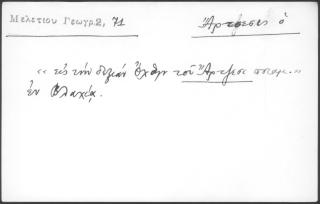 Μελετίου Γεωγρ.2, 71
Ἄρτζεσες ὁ
« εἰς τὴν δεξιὰν ὄχθην τοῦ Ἄρτζεσε ποταμ. »
ἐν Βλαχίᾳ.